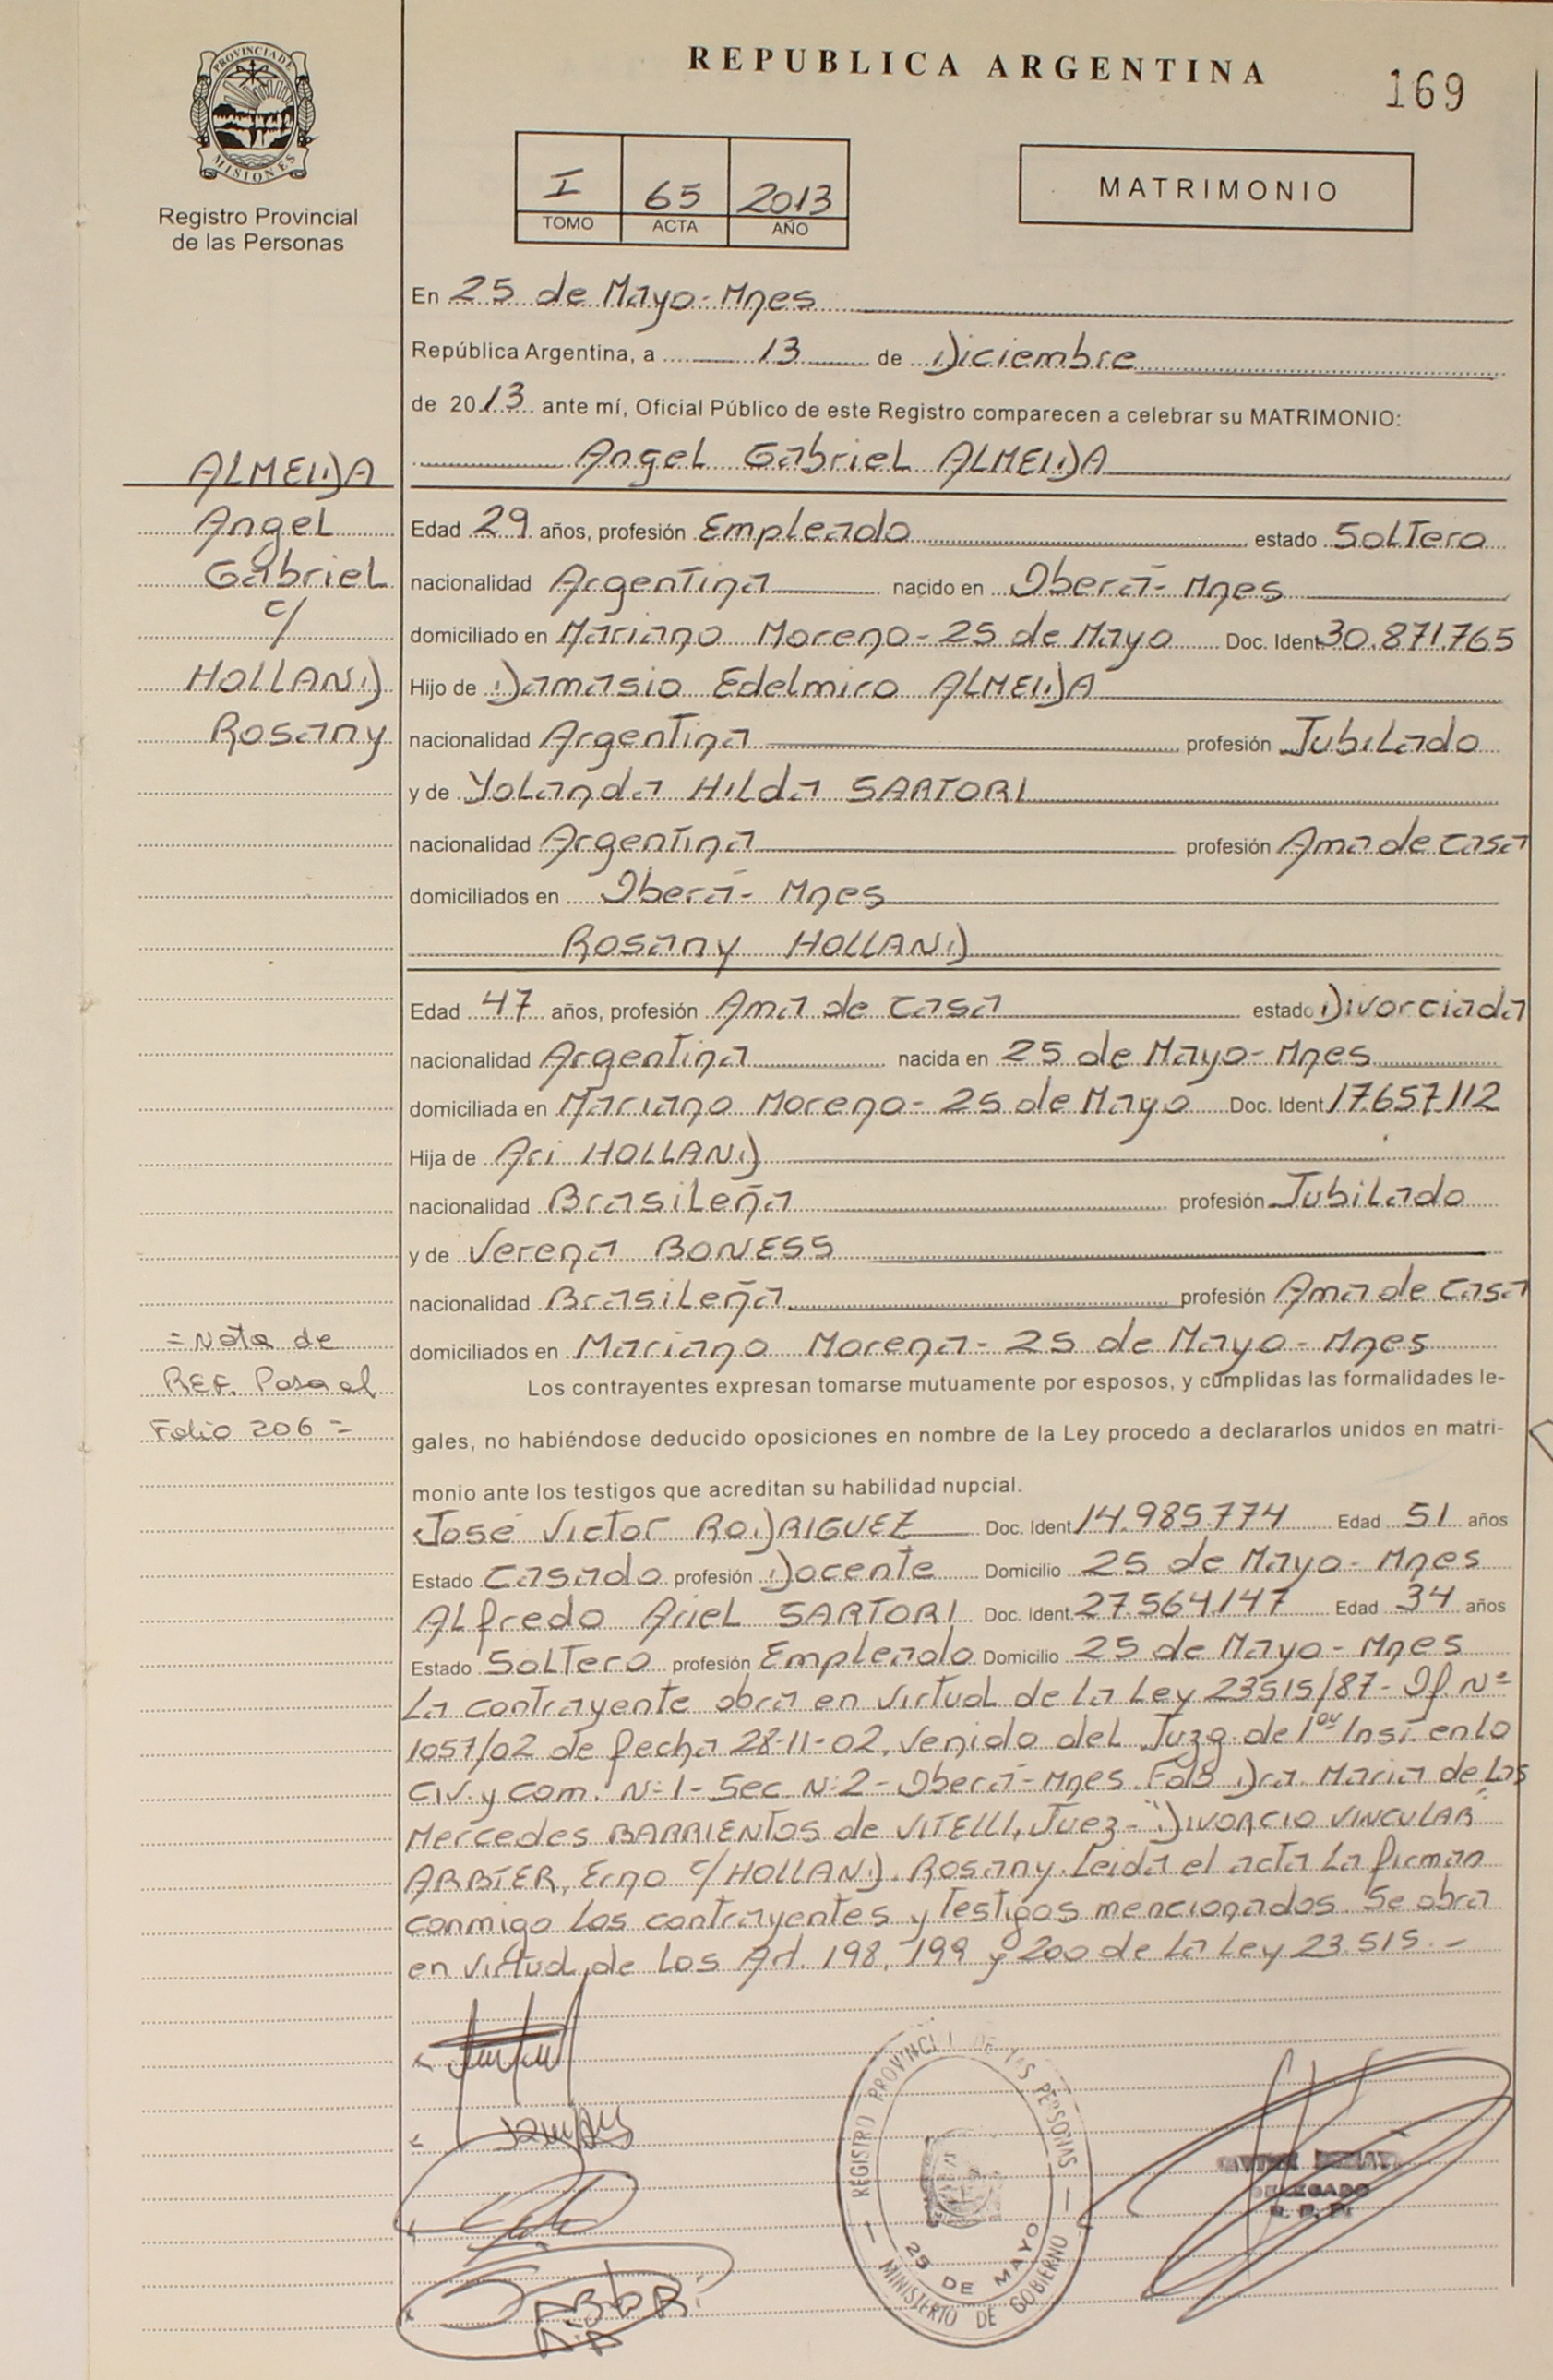 REPUBLICA ARGENTINA
169
PROVINCIA DE
MISIONES
Registro Provincial
de las Personas
I 65 2013
TOMO ACTA AÑO
MATRIMONIO
En 25 de Mayo-Mnes
República Argentina, a 13 de Diciembre
de 2013 ante mí, Oficial Público de este Registro comparecen a celebrar su MATRIMONIO:
Angel Gabriel ALMEIDA
ALMEIDA
Angel
Gabriel
c/
HOLLAND
Rosany
Edad 29 años, profesión Empleado estado Soltero
nacionalidad Argentina nacido en Oberá- Mnes
domiciliado en Mariano Moreno- 25 de Mayo Doc. Ident. 30.871.765
Hijo de Damasio Edelmiro ALMEIDA
nacionalidad Argentina profesión Jubilado
y de Yolanda Hilda SARTORI
nacionalidad Argentina profesión Ama de casa
domiciliados en Oberá- Mnes
Rosany HOLLAND
Edad 47 años, profesión Ama de casa estado Divorciada
nacionalidad Argentina nacida en 25 de Mayo- Mnes
domiciliada en Mariano Moreno- 25 de Mayo Doc. Ident. 17.657.112
Hija de Ari HOLLAND
nacionalidad Brasileña profesión Jubilado
y de Verena BONESS
nacionalidad Brasileña profesión Ama de casa
domiciliados en Mariano Morena- 25 de Mayo- Mnes
=Nota de
REF. Pasa al
Folio 206=
Los contrayentes expresan tomarse mutuamente por esposos, y cumplidas las formalidades le-
gales, no habiéndose deducido oposiciones en nombre de la Ley procedo a declararlos unidos en matri-
monio ante los testigos que acreditan su habilidad nupcial.
José Victor RODRIGUEZ Doc. Ident. 14.985.774 Edad 51 años
Estado Casado profesión Docente Domicilio 25 de Mayo- Mnes
Alfredo Ariel SARTORI Doc. Ident. 27.564.147 Edad 34 años
Estado Soltero profesión Empleado Domicilio 25 de Mayo- Mnes
La contrayente obra en virtual de la Ley 23515/87- Of. Nº
1057/02 de fecha 28-11-02, venido del Juzg. de 1er Inst. en lo
Civ. y Com. Nº1- Sec. Nº2- Oberá- Mnes. Fdo Dra. Maria de Las
Mercedes BARRIENTOS de VITELLI, Juez- "DIVORCIO VINCULAR"
ARBTER, Erno c/ HOLLAND. Rosany. Leida el acta la firman
conmigo los contrayentes y testigos mencionados. Se obra
en virtud de los Art. 198, 199 y 200 de la Ley 23.515.-
REGISTRO PROVINCIAL DE LAS PERSONAS
25 DE MAYO
MINISTERIO DE GOBIERNO
DELEGADO
R. P. P.